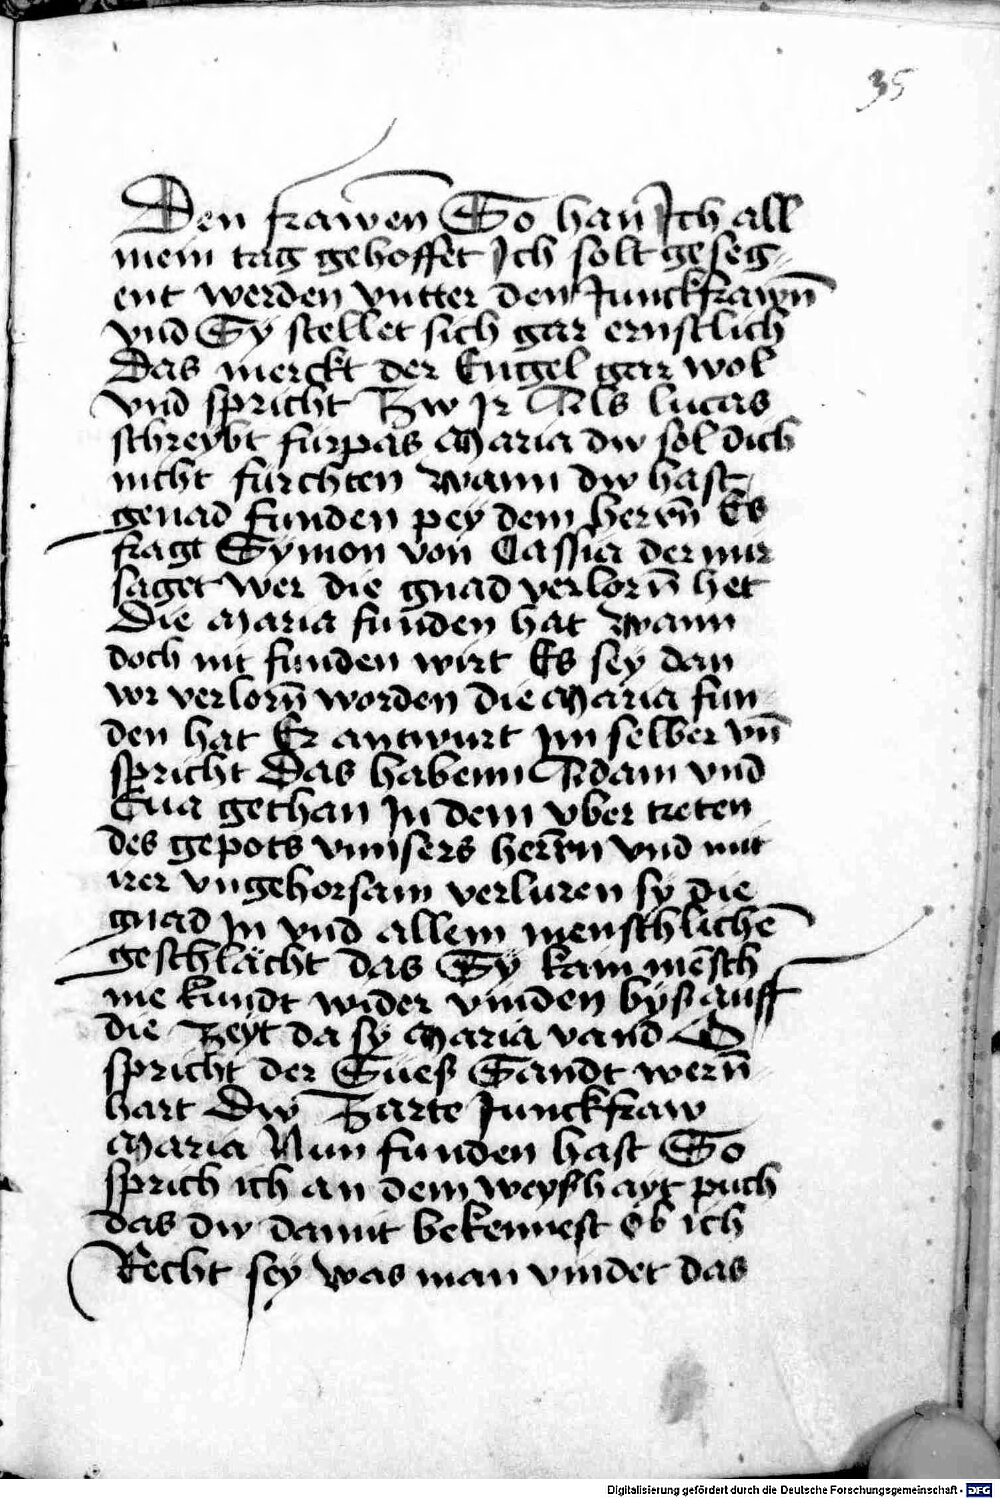 35
Den frawen So han Ich all
mein tag gehoffet Ich solt geseg-
ent werden vntter den Junckfrawn̄
vnd Sÿ stellet sich gar ernstlich
Das merckt der Engel gar wol
vnd spricht Zw Jr Als lucas
schreybt fürpas Maria dw sol dich
nicht fürchten Wann dw hast
genad funden peÿ dem herrn̄ Es
fragt Sÿmon von Cassia der mir
saget wer die gnad verlorn̄ het
Die Maria funden hat Wann
doch nit funden wirt Es seÿ dan
vor verlorn̄ worden die Maria fun-
den hat Er antwurt Im selber vn̄
spricht Das habenn Adam vnd
Eua gethan In dem vber treten
des gepots vnnsers herrn vnd mit
irer vngehorsam verluren sÿ die
gnad In vnd allem menschlichē
geschlächt das Sÿ kain mēsch
nie kundt wider vinden byß auff
die Zeyt da sÿ Maria vand O
spricht der Süeß Sandt wern̄-
hart Dw Zarte Junckfraw
Maria Nun funden hast So
sprich ich an dem weyßhayt puch
das dw damit bekennest Ob ich
Recht seÿ was man vindet das
Digitalisierung gefördert durch die Deutsche Forschungsgemeinschaft - DFG